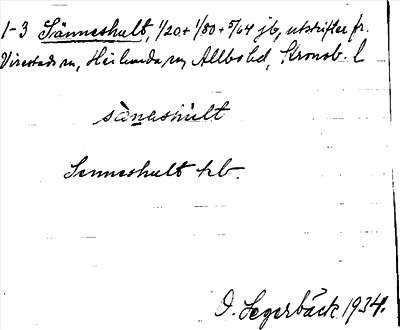 1-3 Sänneshult, 1/20 + 1/80 + 5/64 jb, utskifter fr.
Virestads sn, Härlunda sn, Allbo hd, Kronob. l
sànashúlt
Senneshult kb.
O. Segerbäck 1934.